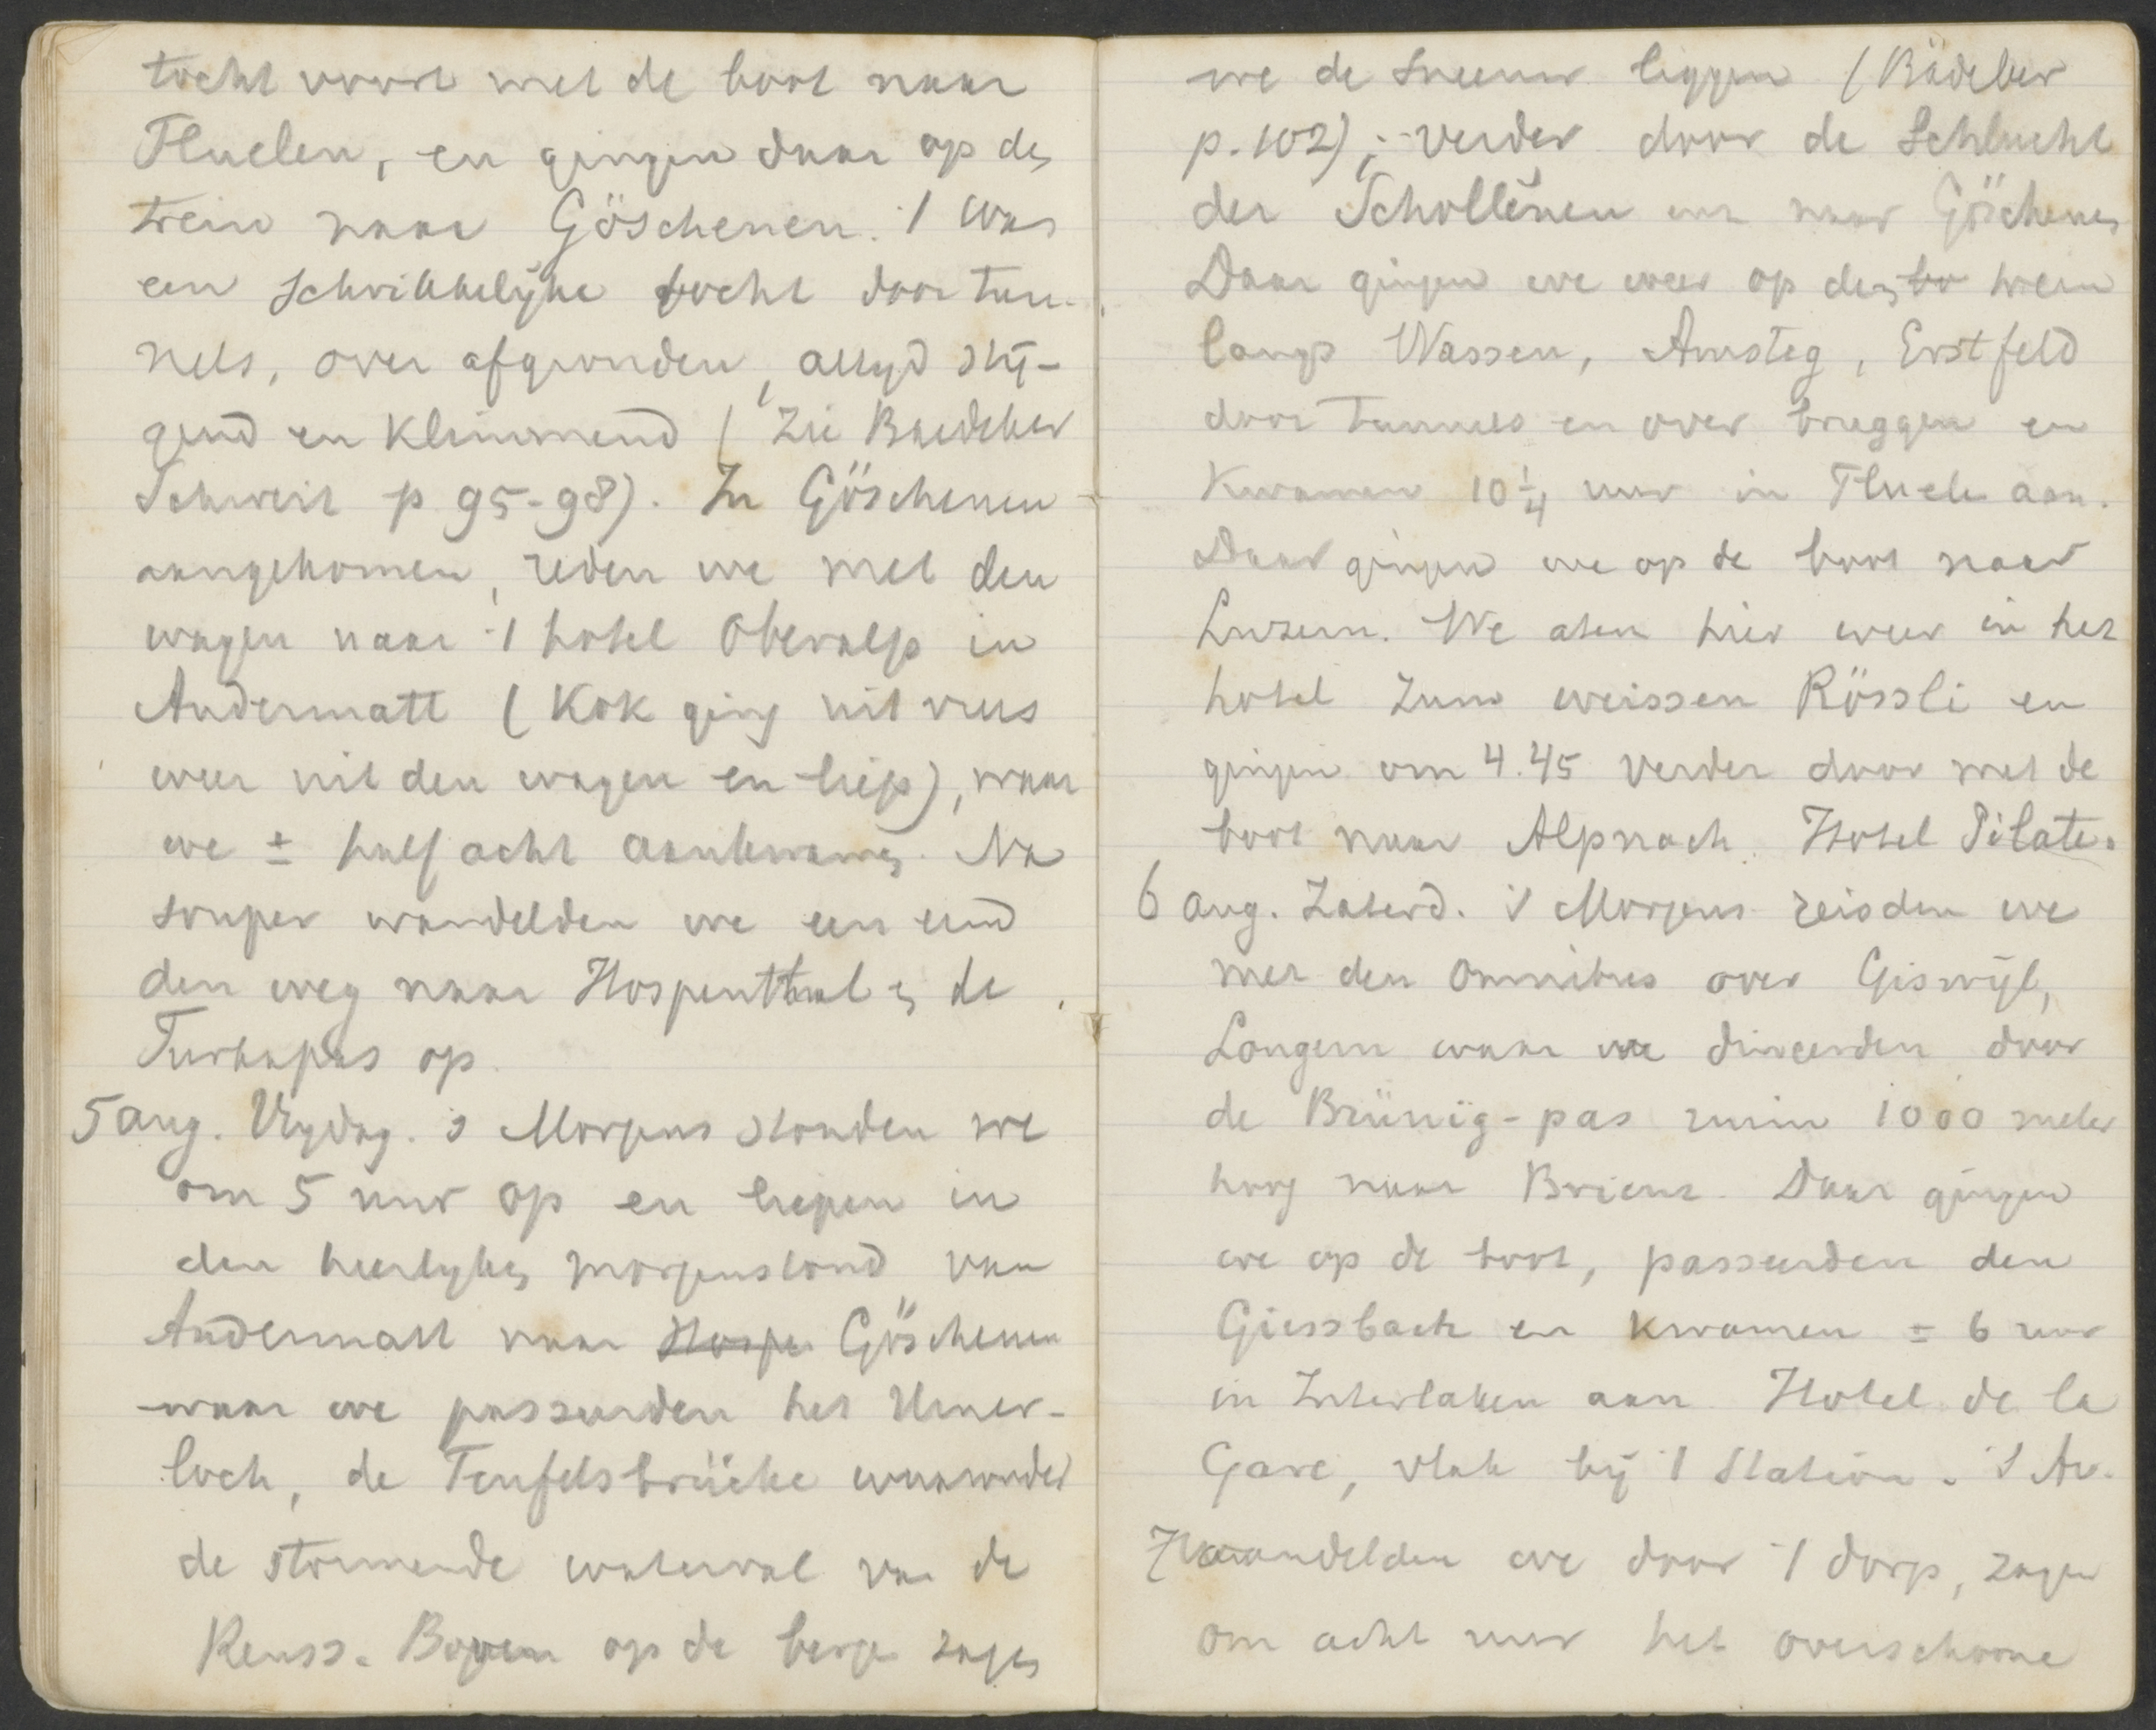 tocht voort met de boot naar
Fluelen, en gingen daar op de
trein naar Göschenen. 't Was
een schrikkelijke tocht door tun-
nels, over afgronden, altyd stij-
gend en klimmend (Zie Baedeker
Schweiz p 95-98). In Göschenen
aangekomen, reden we met den
wagen naar 't hotel Oberalp in
Andermatt (Kok ging uit vrees
weer uit den wagen en liep), waar
we ± half acht aankwamen. Na
souper wandelden we een eind
den weg naar Hospenthal en de
Furkapas op.
5 aug. Vrydag. 's Morgens stonden we
om 5 uur op en liepen in
den heerlyken morgenstond van
Andermatt naar Hospe Göschenen
waar we passeerden het Urner-
loch, de Teufelsbrücke waaronder
de stormende waterval van de
Reuss. Boven op de bergen zagen
we de sneeuw liggen (Bädeker
p. 102); verder door de Schlucht
der Schollënen en naar Göschenen
Daar gingen we weer op den bo trein
langs Wassen, Amsteg, Erstfeld
door tunnels en over bruggen en
kwamen 10 1/4 uur in Fluelen aan.
Daar gingen we op de boot naar
Luzern. We aten hier weer in het
hotel zum weissen Rössli en
gingen om 4.45 verder door met de
boot naar Alpnach. Hotel Pilate.
6 aug. Zaterd. 's Morgens reisden we
met den omnibus over Giswijl,
Longern waar we dineerden door
de Brünig-pas ruim 1000 meter
hoog naar Brienz. Daar gingen
we op de boot, passeerden den
Giessbach en kwamen ± 6 uur
in Interlaken aan Hotel de la
Gare, vlak bij 't Station. 's Av.
wandelden we door 't dorp, zagen
om acht uur het overschoone